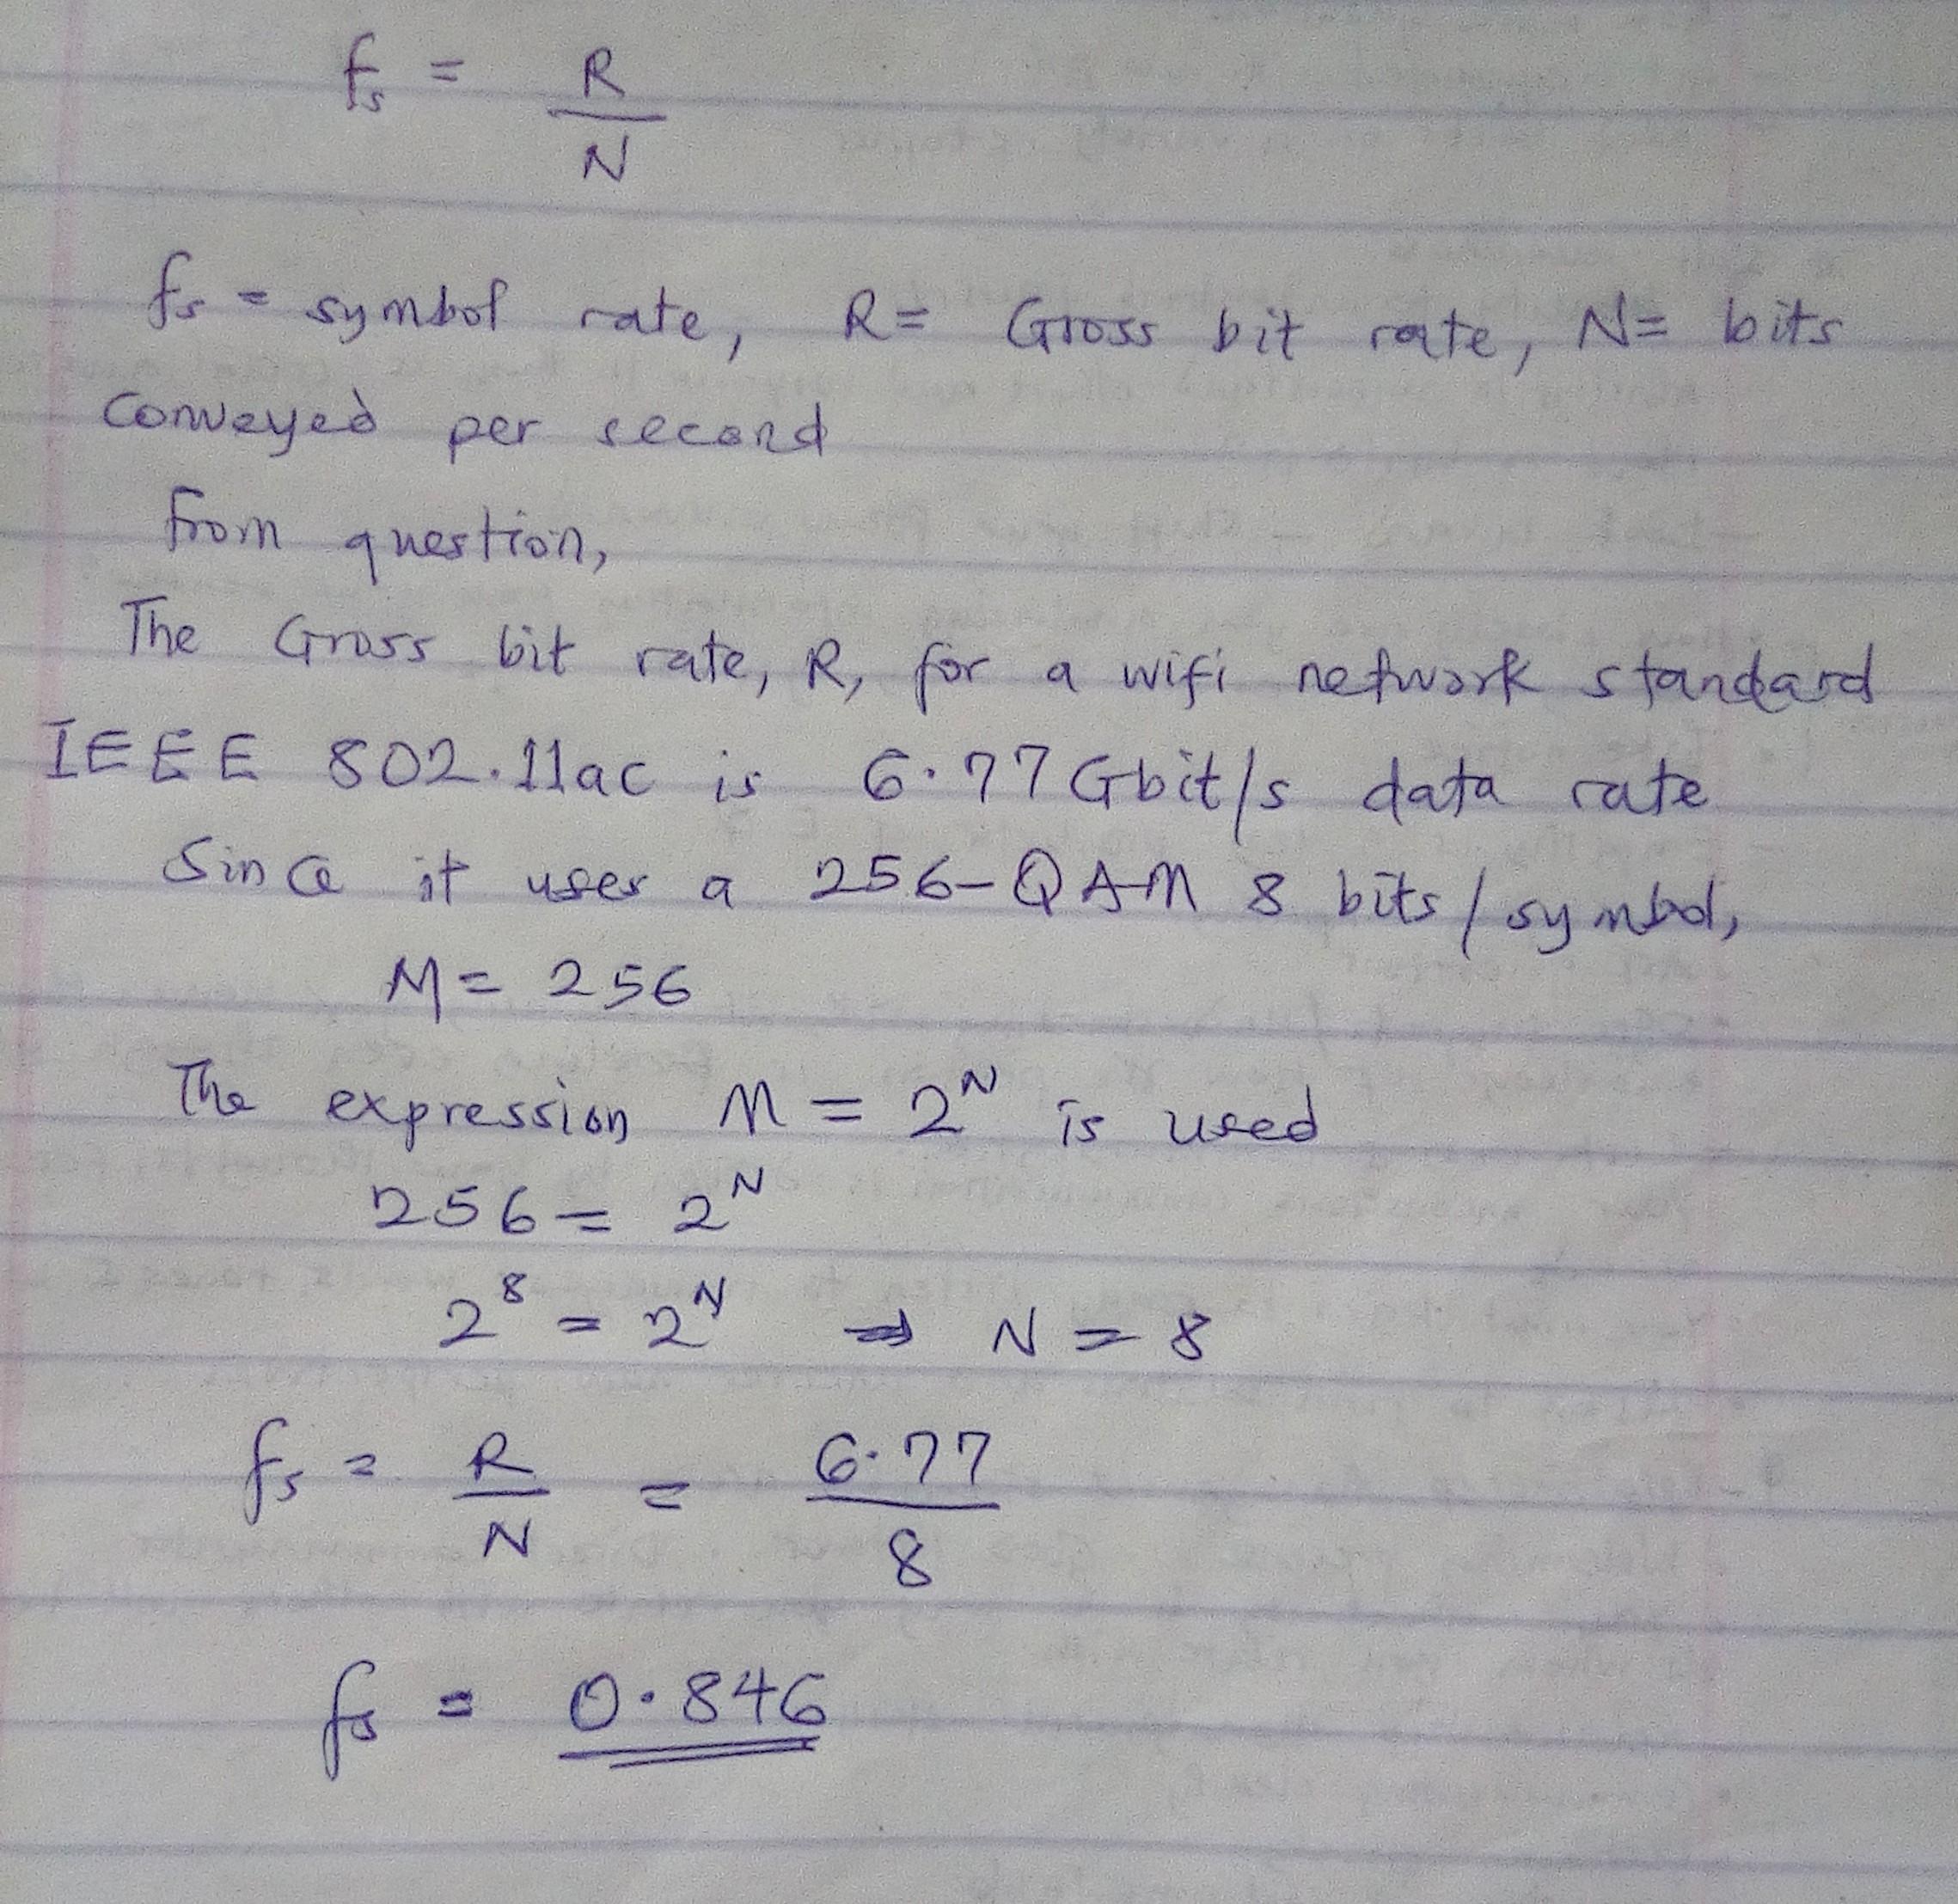 fs = R
N
fs = symbol rate, R = Gross bit rate, N = bits
conveyed per second
from question,
The Gross bit rate, R, for a wifi network standard
IEEE 802.11ac is 6.77 Gbit/s data rate
Since it uses a 256-QAM 8 bits / symbol,
M = 256
The expression M = 2^N is used
256 = 2^N
2^8 = 2^N ⇒ N = 8
fs = R/N = 6.77/8
fs = 0.846